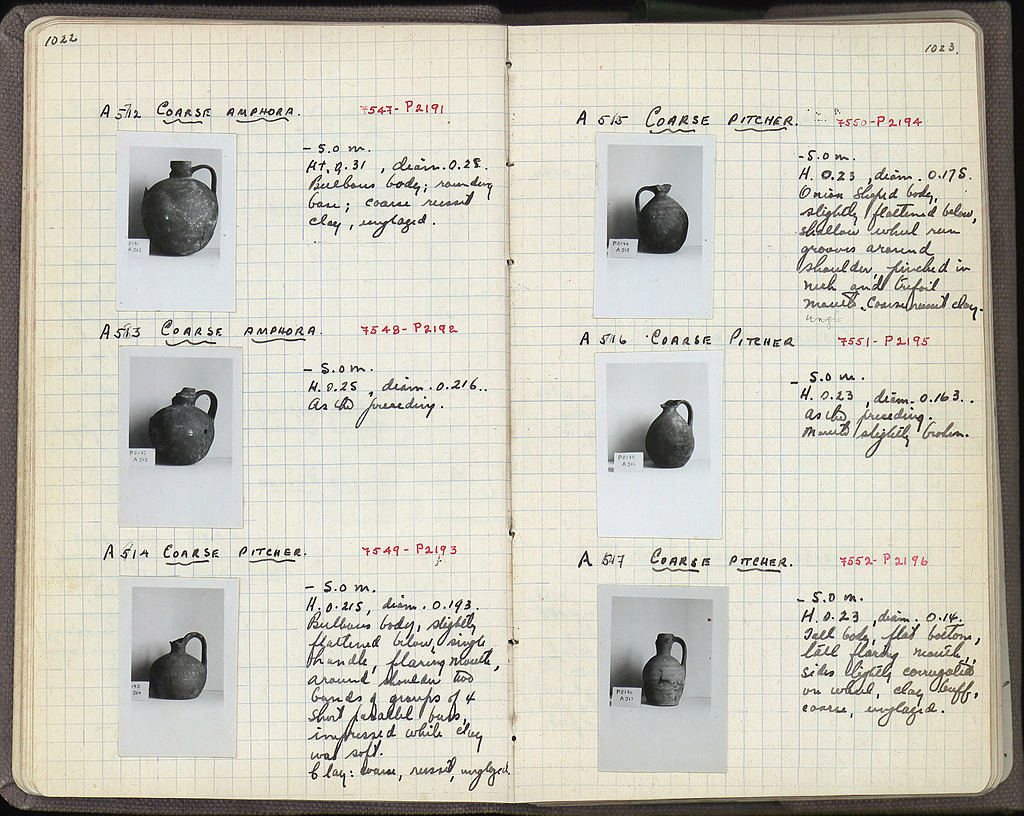 1022
A 512 COARSE AMPHORA. 7547- P2191
- 5.0 m.
Ht. 0.31, diam. 0.28.
Bulbous body; rounding
base; coarse russet
clay, unglazed.
A 513 COARSE AMPHORA. 7548- P2192
- 5.0 m.
H. 0.25, diam. 0.216..
As the preceding.
P2192
A 513
A 514 COARSE PITCHER. 7549- P2193
- 5.0 m.
H. 0.215, diam. 0.193.
Bulbous body, slightly
flattened below, single
handle, flaring mouth,
around shoulder two
bands of groups of 4
short parallel bars,
impressed while clay
was soft.
Clay: coarse, russet, unglazed.
1023.
A 515 COARSE PITCHER. 7550- P2194
- 5.0 m.
H. 0.23, diam. 0.175.
Onion shaped body,
slightly flattened below,
shallow wheel run
grooves around
shoulder, pinched in
neck and trefoil
mouth. Coarse russet clay.
P2194
A 515
A 516 COARSE PITCHER 7551- P2195
- 5.0 m.
H. 0.23, diam. 0.163..
As the preceding.
Mouth slightly broken.
P2195
A 517 COARSE PITCHER. 7552- P2196
- 5.0 m.
H. 0.23, diam. 0.14.
Tall body, flat bottom,
tall flaring mouth,
sides slightly corrugated
on wheel, clay buff,
coarse, unglazed.
P2196
A 517